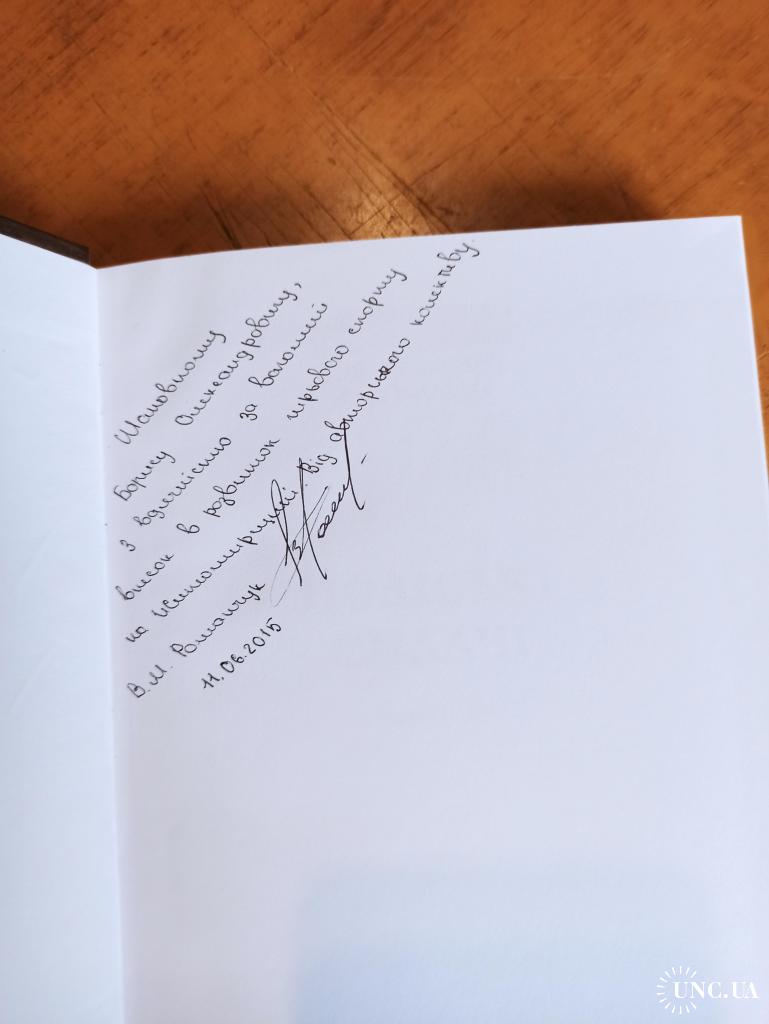 Шановному
Борису Олександровичу,
з вдячністю за вагомий
внесок в розвиток гирьового спорту
на Житомирщині. Від авторського колективу
В.М. Романчук
11.06.2015
UNC.UA